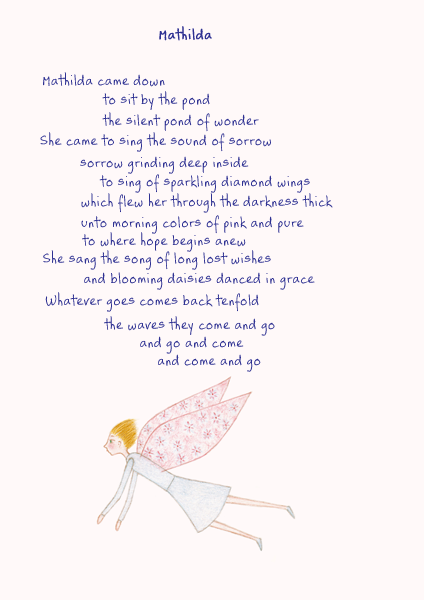 Mathilda
Mathilda came down
to sit by the pond
the silent pond of wonder
She came to sing the sound of sorrow
sorrow grinding deep inside
to sing of sparkling diamond wings
which flew her through the darkness thick
unto morning colors of pink and pure
to where hope begins anew
She sang the song of long lost wishes
and blooming daisies danced in grace
Whatever goes comes back tenfold
the waves they come and go
and go and come
and come and go